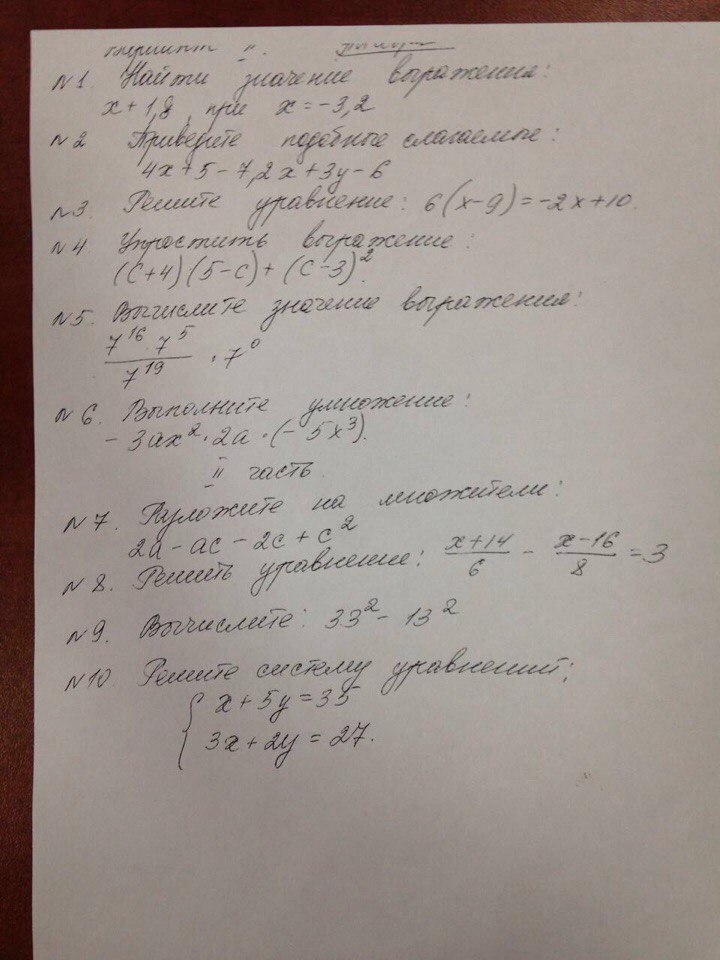 N1. Найти значение выражения:
x + 1,8, при x = -3,2
N2 Приведите подобные слагаемые:
4x + 5 - 7,2x + 3y - 6
N3. Решите уравнение: 6(x-9) = -2x+10.
N4 Упростить выражение:
(c+4)(5-c) + (c-3)²
N5. Вычислите значение выражения:
7¹⁶ · 7⁵ / 7¹⁹ · 7⁰
N6. Выполните умножение:
- 3ax² · 2a · (-5x³).
II часть.
N7. Разложите на множители:
2a - ac - 2c + c²
N8. Решить уравнение: x+14 / 6 - x-16 / 8 = 3
N9. Вычислите: 33² - 13²
N10. Решите систему уравнений:
{ x + 5y = 35
3x + 2y = 27.